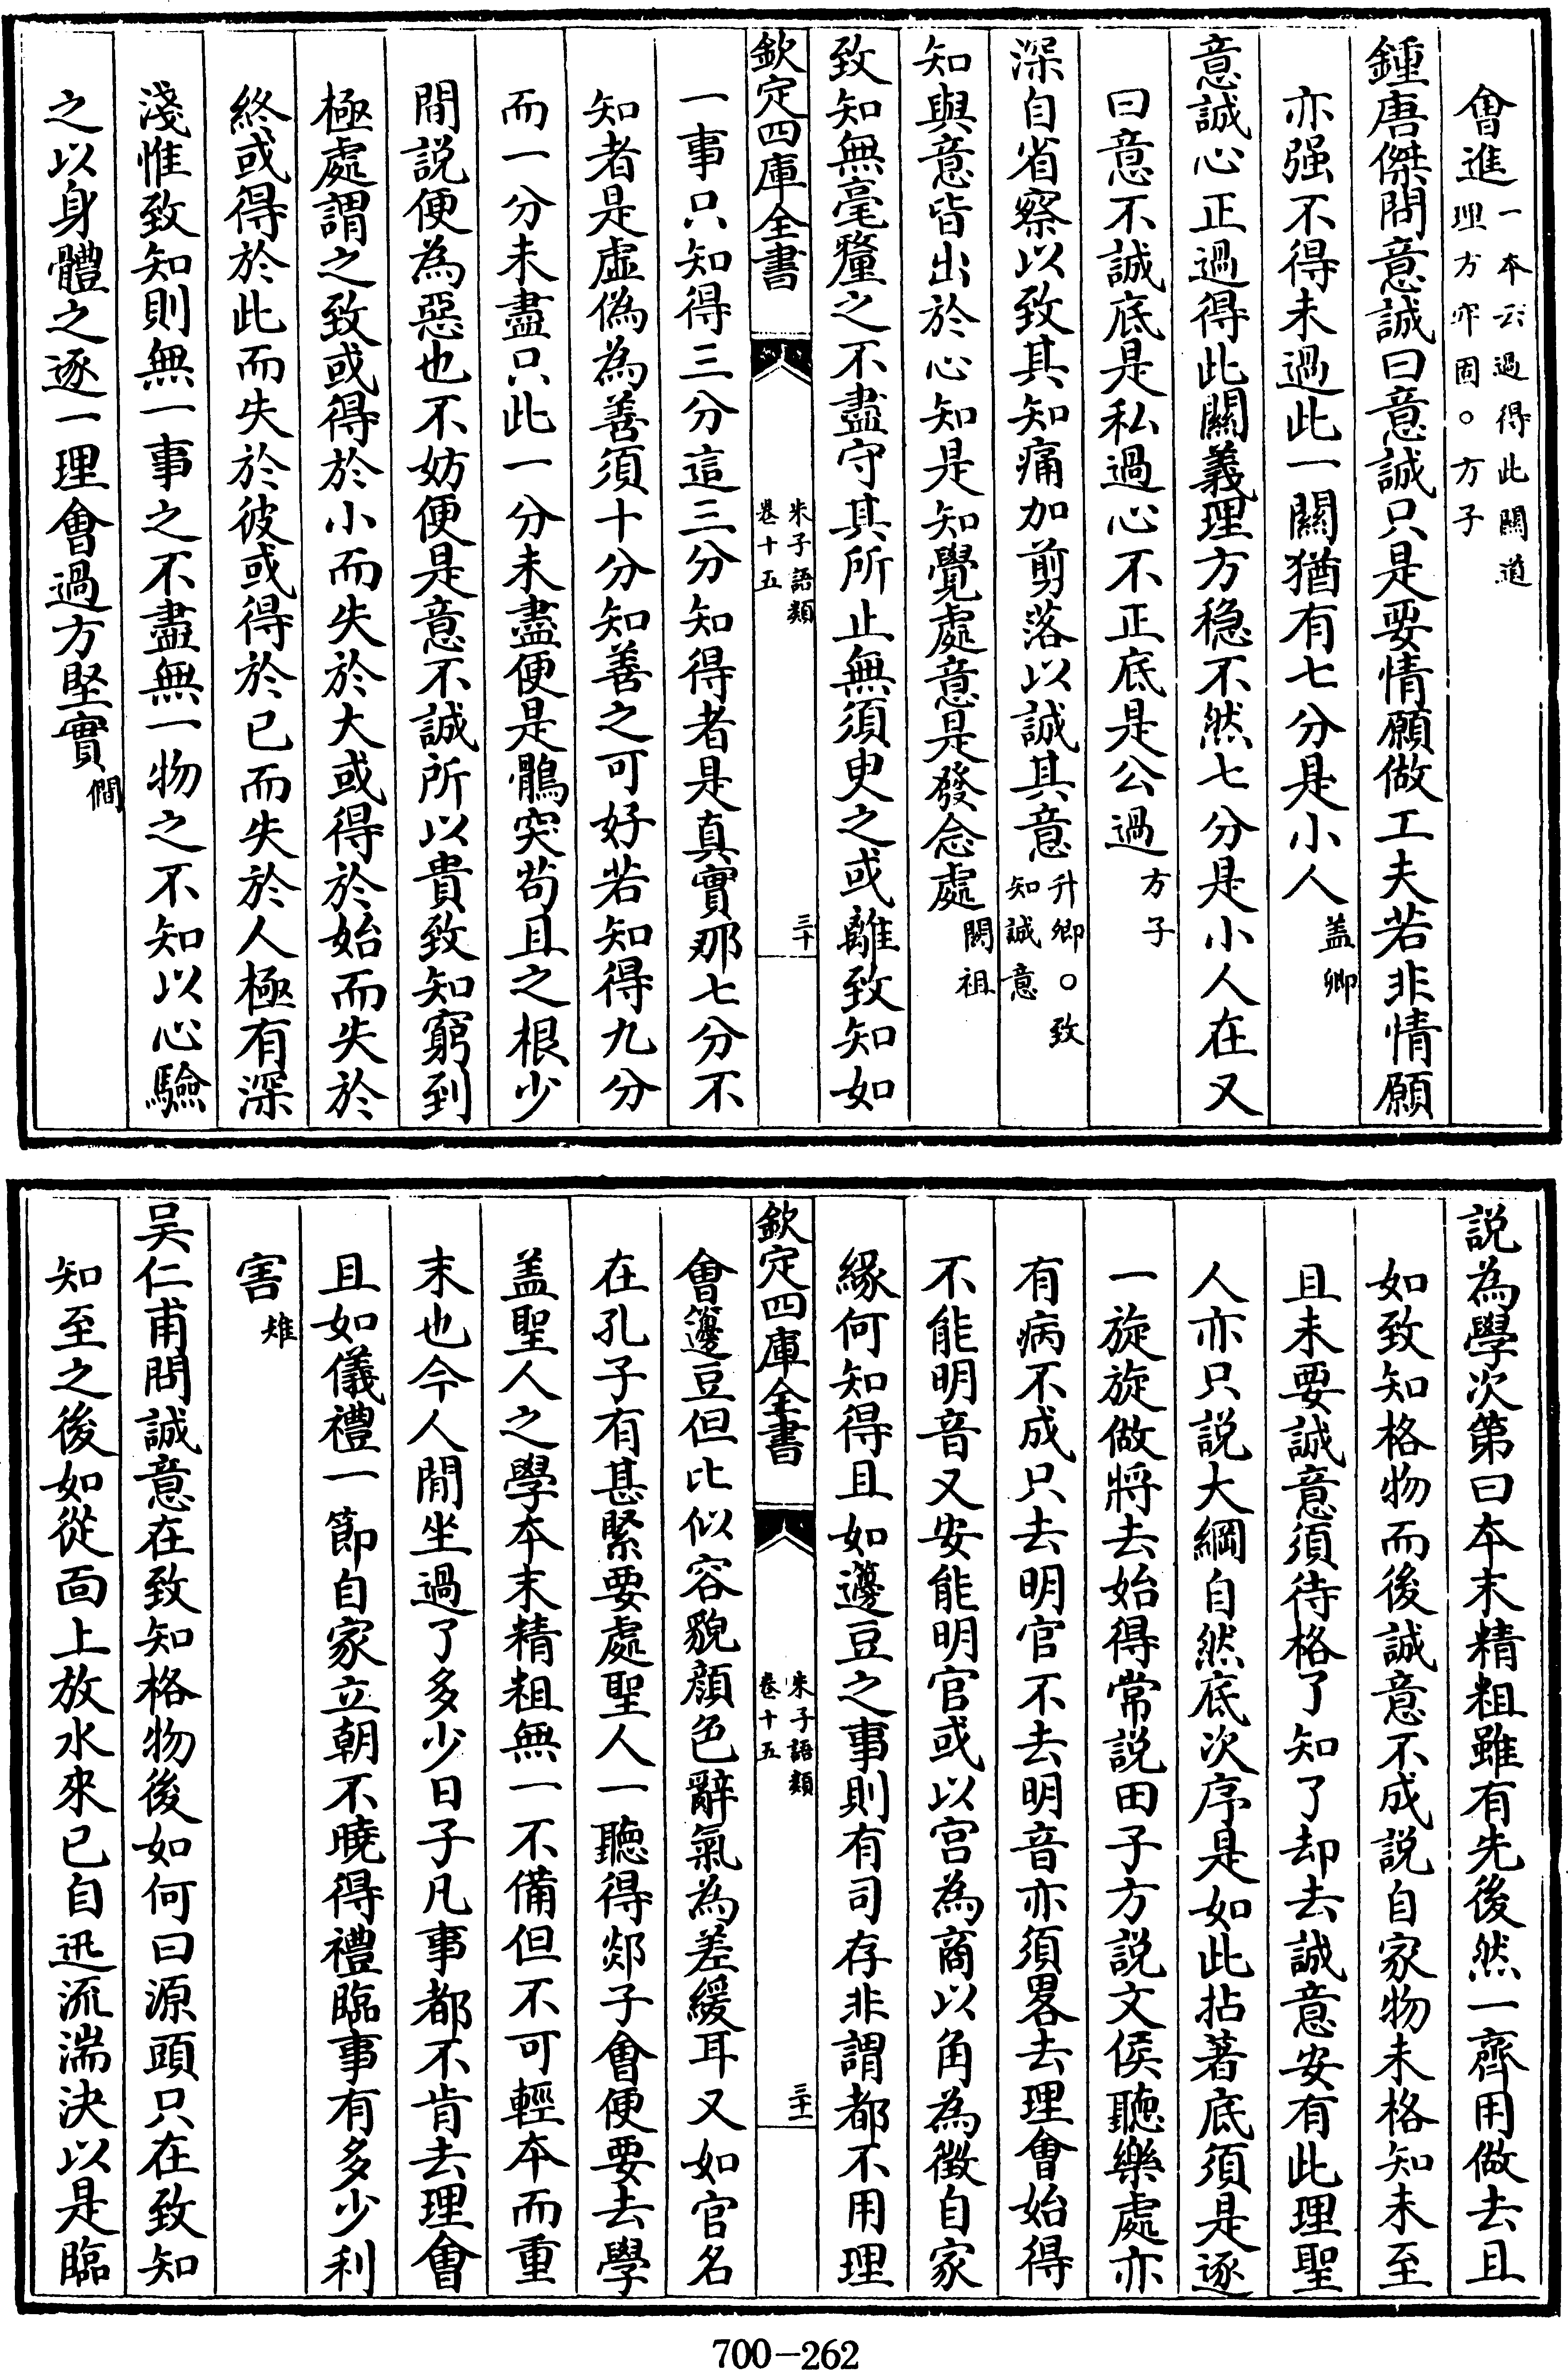 會進一本云過得此關道理方牢固○方子
鍾唐傑問意誠曰意誠只是要情願做工夫若非情願
亦强不得未過此一關猶有七分是小人盖卿
意誠心正過得此關義理方穏不然七分是小人在又
曰意不誠底是私過心不正底是公過方子
深自省察以致其知痛加剪落以誠其意升卿○致知誠意
知與意皆出於心知是知覺處意是發念處閎祖
致知無毫釐之不盡守其所止無須臾之或離致知如
欽定四庫全書 朱子語類卷十五 三十
一事只知得三分這三分知得者是真實那七分不
知者是虚偽為善須十分知善之可好若知得九分
而一分未盡只此一分未盡便是鶻突苟且之根少
間説便為惡也不妨便是意不誠所以貴致知窮到
極處謂之致或得於小而失於大或得於始而失於
終或得於此而失於彼或得於已而失於人極有深
淺惟致知則無一事之不盡無一物之不知以心驗
之以身體之逐一理會過方堅實僩
説為學次第曰本末精粗雖有先後然一齊用做去且
如致知格物而後誠意不成説自家物未格知未至
且未要誠意須待格了知了却去誠意安有此理聖
人亦只説大綱自然底次序是如此拈著底須是逐
一旋旋做將去始得常説田子方説文侯聽樂處亦
有病不成只去明官不去明音亦須畧去理會始得
不能明音又安能明官或以宫為商以角為徴自家
緣何知得且如籩豆之事則有司存非謂都不用理
欽定四庫全書 朱子語類卷十五 三十一
會籩豆但比似容貌顔色辭氣為差緩耳又如官名
在孔子有甚緊要處聖人一聽得郯子會便要去學
盖聖人之學本末精粗無一不備但不可輕本而重
末也今人閒坐過了多少日子凡事都不肯去理會
且如儀禮一節自家立朝不曉得禮臨事有多少利
害雉
吴仁甫問誠意在致知格物後如何曰源頭只在致知
知至之後如從靣上放水來已自迅流湍決以是臨
700-262